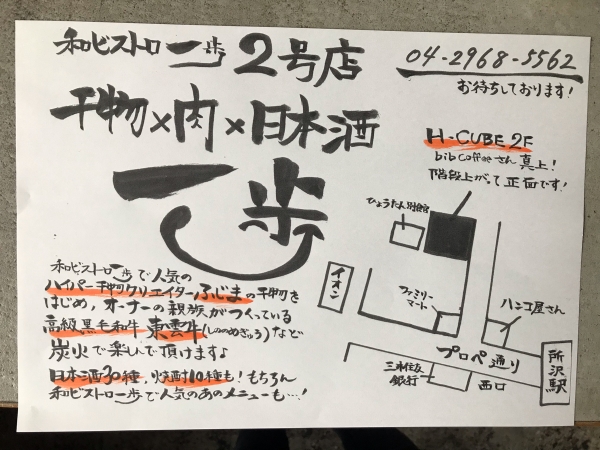 和ビストロ一歩 2号店
04-2968-5562
お待ちしております!
干物×肉×日本酒
一歩
H-CUBE 2F
bib Coffeeさん真上!
階段上がって正面です!
ひょうたん別館
イオン
ファミリーマート
ハンコ屋さん
プロペ通り
三井住友
銀行
西口
所沢駅
和ビストロ一歩で人気の
ハイパー干物クリエイターふじまの干物を
はじめ、オーナーの親族がつくっている
高級黒毛和牛 東雲牛(しののめぎゅう)など
炭火で楽しんで頂けます♪
日本酒30種,焼酎10種も!もちろん
和ビストロ一歩で人気のあのメニューも…!